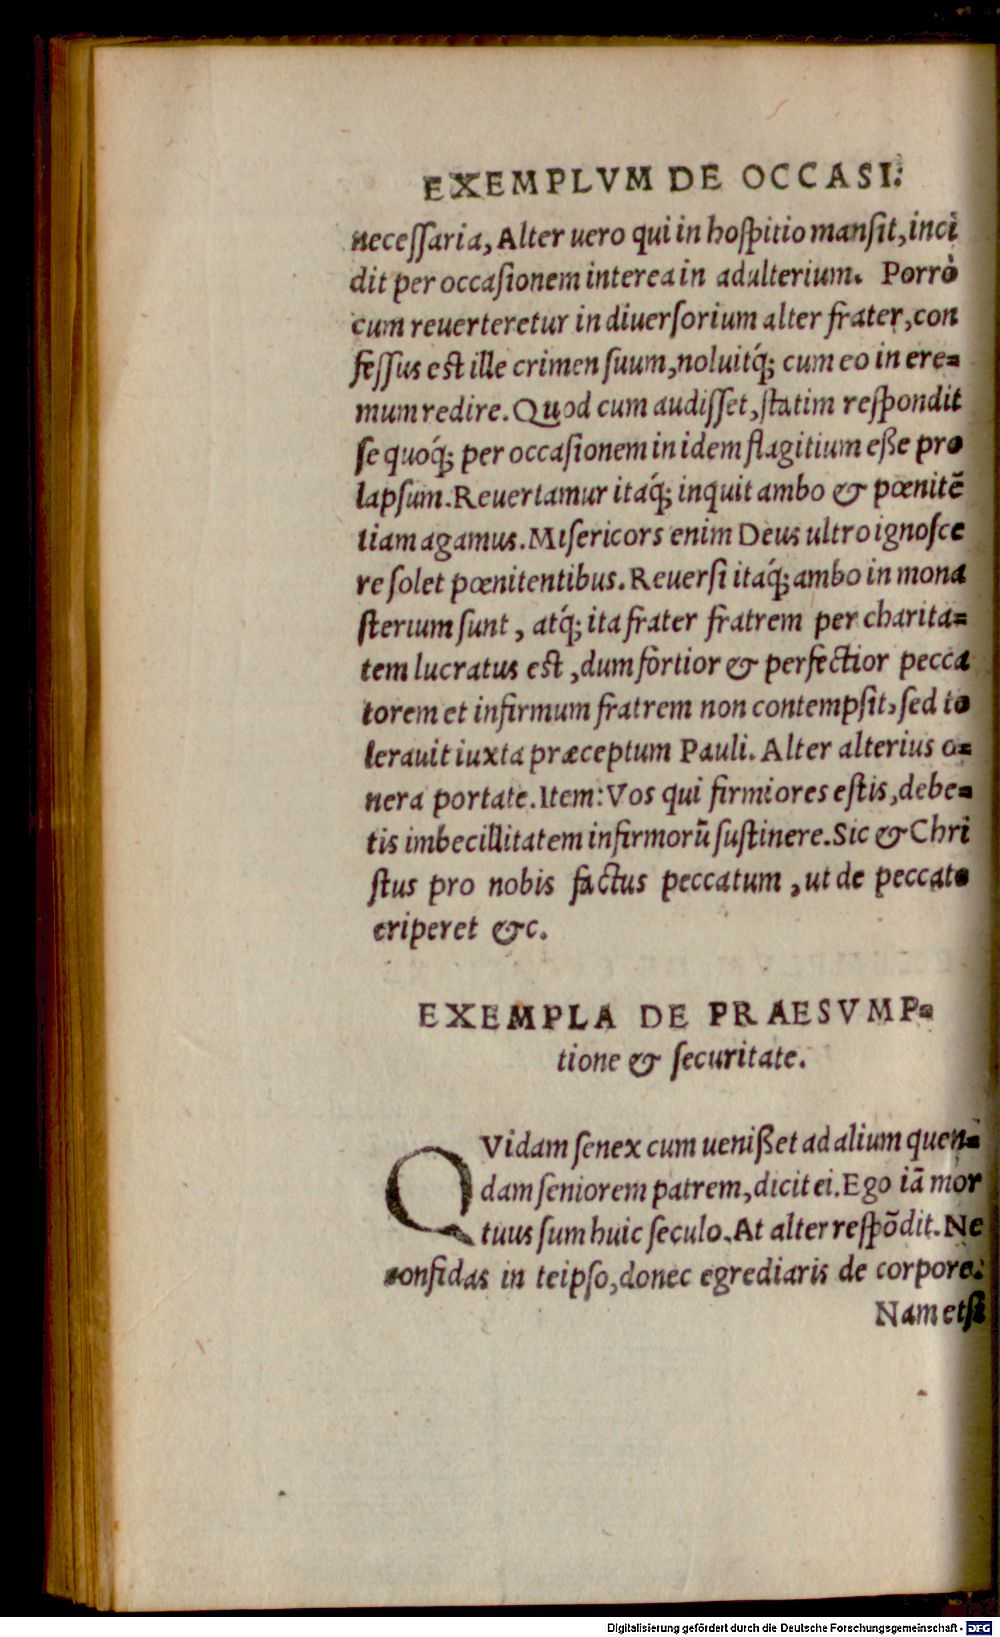 EXEMPLVM DE OCCASI:
neceſſaria, Alter uero qui in hoſpitio manſit, inci
dit per occaſionem interea in adulterium. Porrò
cum reuerteretur in diuerſorium alter frater, con
feſſus eſt ille crimen ſuum, noluitq́; cum eo in ere⸗
mum redire. Quod cum audiſſet, ſtatim reſpondit
ſe quoq́; per occaſionem in idem flagitium eße pro
lapſum. Reuertamur itaq́; inquit ambo & pœnitē
tiam agamus. Miſericors enim Deus ultro ignoſce
re ſolet pœnitentibus. Reuerſi itaq́; ambo in mona
ſterium ſunt, atq́; ita frater fratrem per charita⸗
tem lucratus eſt, dum fortior & perfectior pecca
torem et infirmum fratrem non contempſit, ſed to
lerauit iuxta præceptum Pauli. Alter alterius o⸗
nera portate. Item: Vos qui firmiores eſtis, debe⸗
tis imbecillitatem infirmorū ſuſtinere. Sic & Chri
ſtus pro nobis factus peccatum, ut de peccato
eriperet &c.
EXEMPLA DE PRAESVMP⸗
tione & ſecuritate.
QVidam ſenex cum uenißet ad alium quen⸗
dam ſeniorem patrem, dicit ei. Ego iā mor
tuus ſum huic ſeculo. At alter reſpōdit. Ne
confidas in teipſo, donec egrediaris de corpore:
Nam etſi
Digitalisierung gefördert durch die Deutsche Forschungsgemeinschaft - DFG